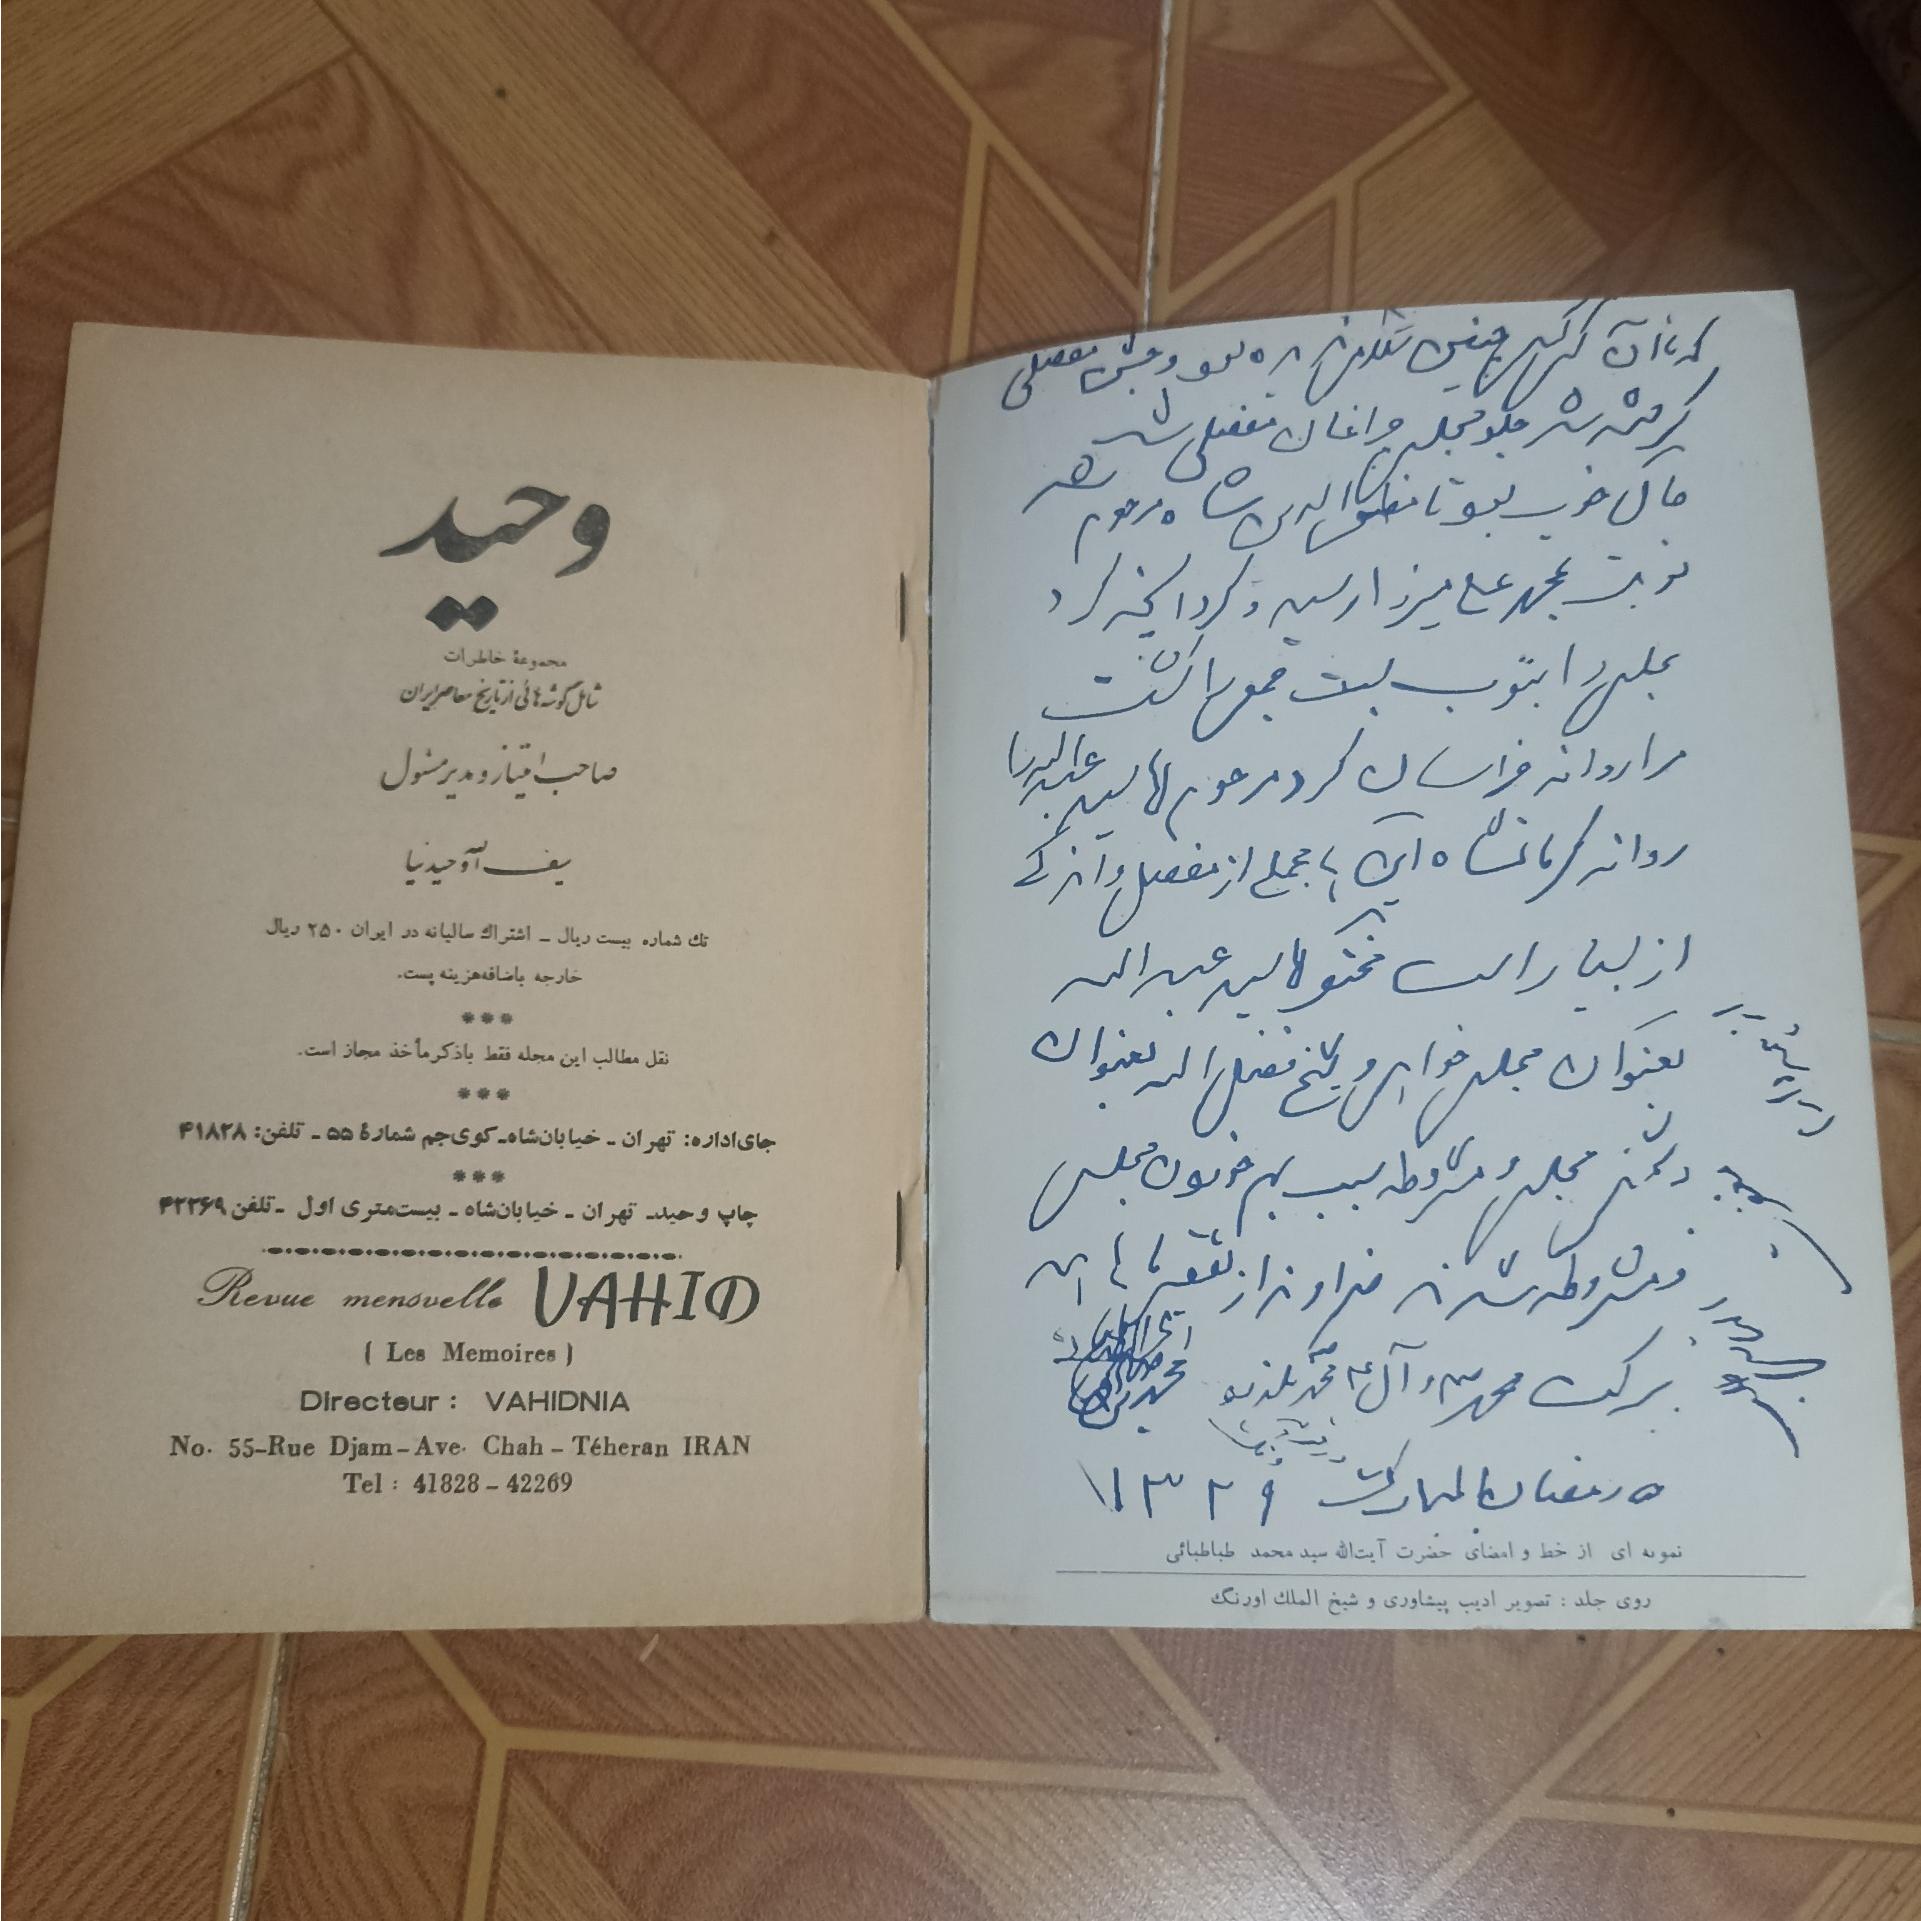 وحید
مجموعهٔ خاطرات
شامل گوشه هائی از تاریخ معاصر ایران
صاحب امتیاز و مدیر مسئول
سیف الله وحیدنیا
تك شماره بیست ریال ـ اشتراك سالیانه در ایران ۲۵۰ ریال
خارجه باضافه هزینه پست.
***
نقل مطالب این مجله فقط باذکر مأخذ مجاز است.
***
جای اداره: تهران ـ خیابان شاه ـ کوی جم شمارهٔ ۵۵ ـ تلفن: ۴۱۸۲۸
***
چاپ وحید ـ تهران ـ خیابان شاه ـ بیست متری اول ـ تلفن ۴۲۲۶۹
Revue mensuelle VAHID
( Les Memoires )
Directeur : VAHIDNIA
No. 55-Rue Djam-Ave. Chah-Téheran IRAN
Tel : 41828-42269
گرفته شد جلو مجلس چراغان مفصلی شد
مال خوب بود تا مظفرالدین شاه مرحوم شد
نوبت بمحمد علی میرزا رسید و کرد آنچه کرد
مجلس را بتوپ بست جمعی را کشت
مرا روانه خراسان کرد مرحوم آقا سید عبدالله را
روانه کرمانشاه این مجملی از مفصل و اندکی
از بسیار است آقا سید عبدالله
بعنوان مجلس خواهی و شیخ فضل الله بعنوان
دشمنی مجلس و مشروطه سبب بهم خوردن مجلس
و مشروطه شدند خداوند از تقصیر ما
برکت محمد ص و آل محمد بگذرد
۵ رمضان المبارک ۱۳۲۹
نمونه ای از خط و امضای حضرت آیت‌الله سید محمد طباطبائی
روی جلد : تصویر ادیب پیشاوری و شیخ الملك اورنگ